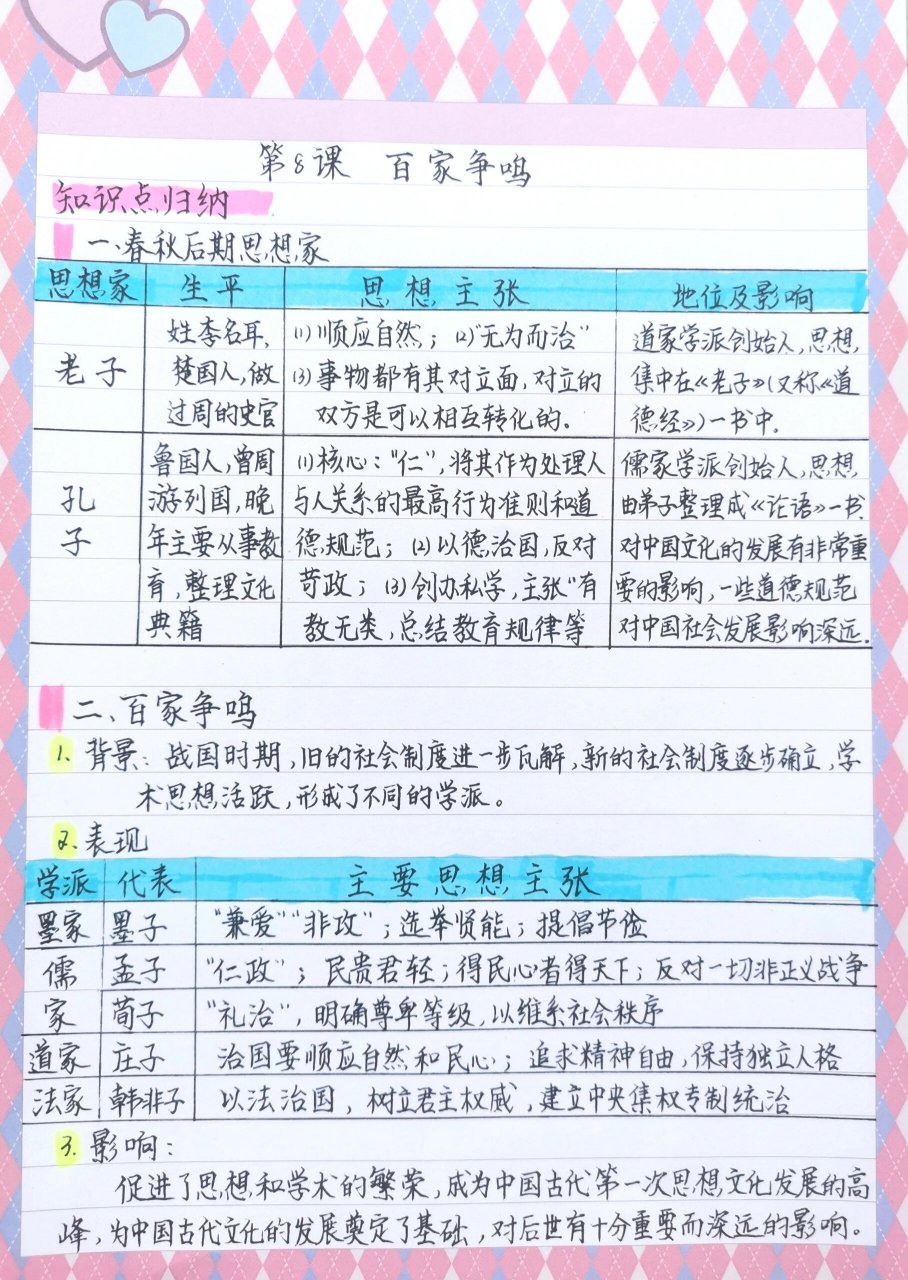 第8课 百家争鸣
知识点归纳
一、春秋后期思想家
思想家 生平 思想主张 地位及影响
老子
姓李名耳,
楚国人,做
过周的史官
(1)顺应自然;(2)"无为而治"
(3)事物都有其对立面,对立的
双方是可以相互转化的.
道家学派创始人,思想,
集中在《老子》(又称《道
德经》)一书中.
孔
子
鲁国人,曾周
游列国,晚
年主要从事教
育,整理文化
典籍
(1)核心:"仁",将其作为处理人
与人关系的最高行为准则和道
德规范;(2)以德治国,反对
苛政;(3)创办私学,主张"有
教无类,总结教育规律等
儒家学派创始人,思想
由弟子整理成《论语》一书.
对中国文化的发展有非常重
要的影响,一些道德规范
对中国社会发展影响深远.
二、百家争鸣
1. 背景:战国时期,旧的社会制度进一步瓦解,新的社会制度逐步确立,学
术思想活跃,形成了不同的学派。
2. 表现
学派 代表 主要思想主张
墨家 墨子 "兼爱""非攻";选举贤能;提倡节俭
儒 孟子 "仁政";民贵君轻;得民心者得天下;反对一切非正义战争
家 荀子 "礼治",明确尊卑等级,以维系社会秩序
道家 庄子 治国要顺应自然和民心;追求精神自由,保持独立人格
法家 韩非子 以法治国,树立君主权威,建立中央集权专制统治
3. 影响:
促进了思想和学术的繁荣,成为中国古代第一次思想文化发展的高
峰,为中国古代文化的发展奠定了基础,对后世有十分重要而深远的影响。